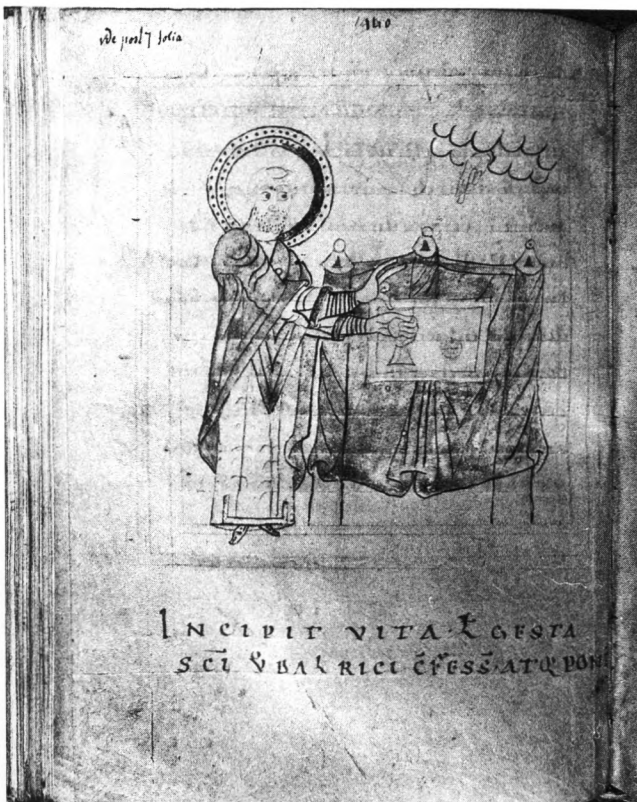 vide post 7 folia
INCIPIT VITA · & GESTA
SCI VDALRICI CFESS · ATQ PON